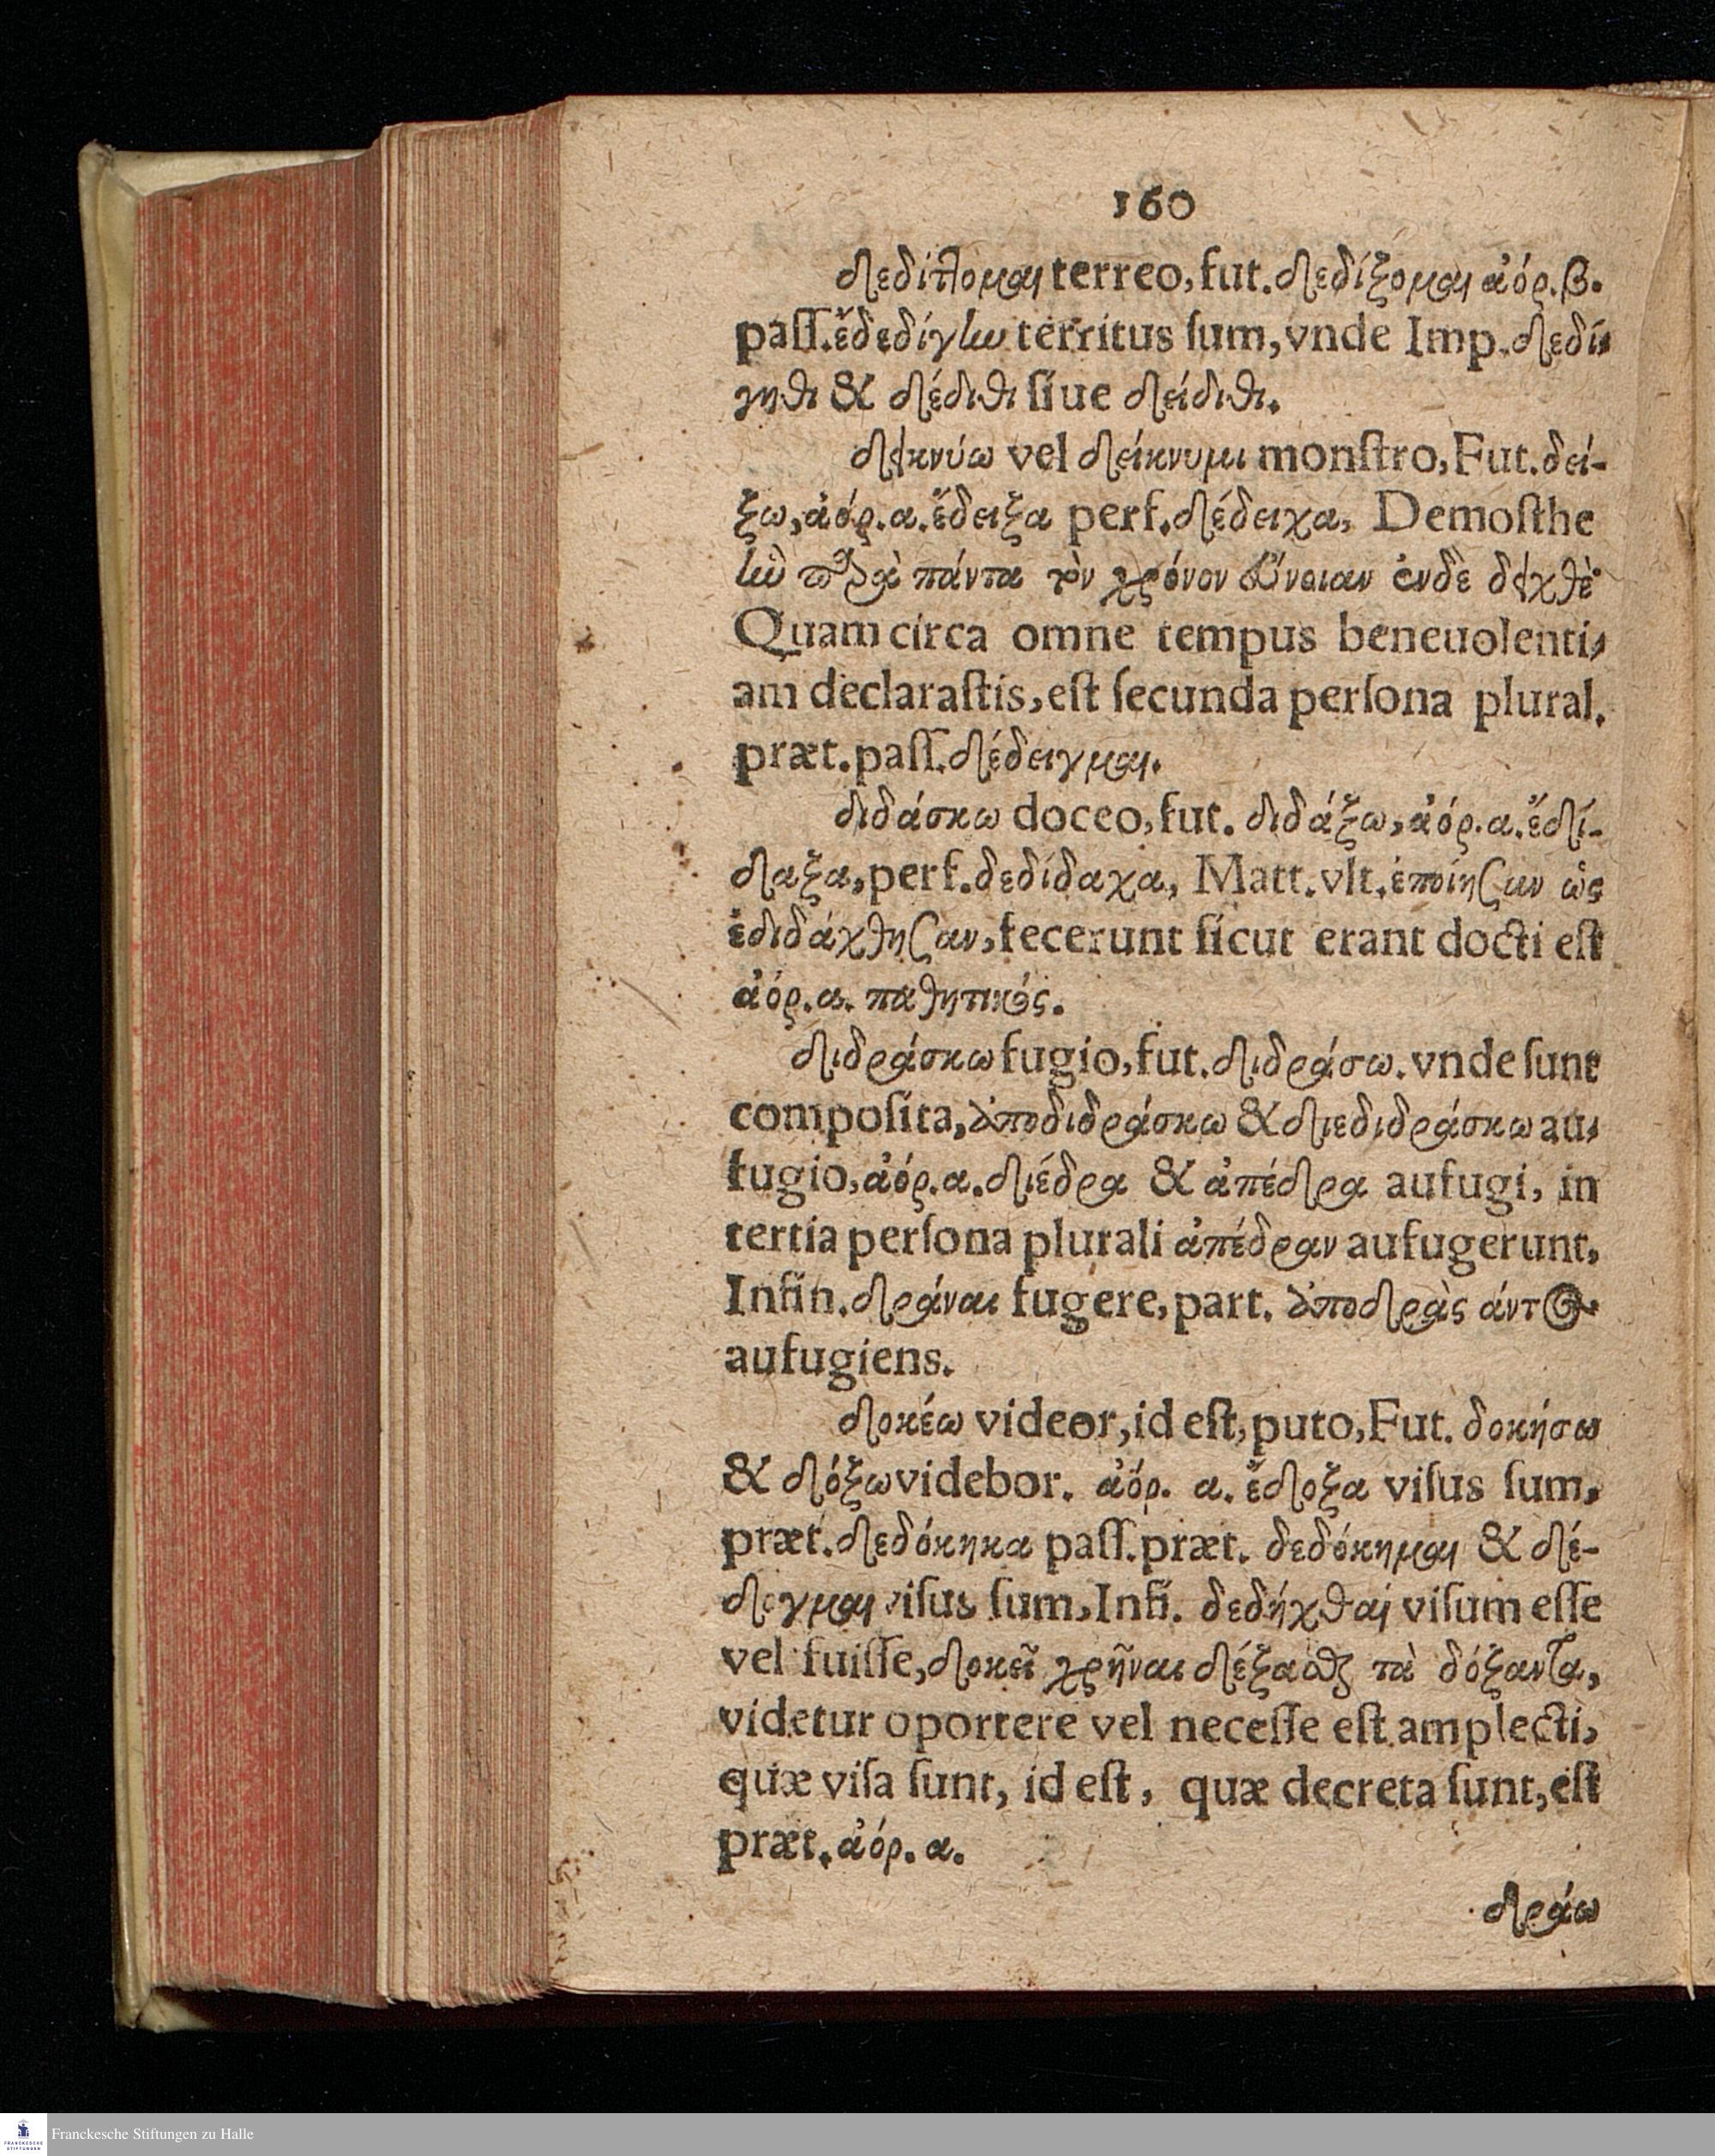 160
δεδίττομαι terreo, fut. δεδίξομαι ἀόρ. β.
paſſ. ἐδεδίγην territus ſum, vnde Imp. δεδί-
γηθι & δέδιθι ſiue δείδιθι.
δεικνύω vel δείκνυμι monſtro, Fut. δεί-
ξω, ἀόρ. α. ἔδειξα perf. δέδειχα, Demoſthe
ἣν παρὰ πάντα τὸν χρόνον εὔνοιαν ἐνδεδειχθὲ
Quam circa omne tempus beneuolenti-
am declaraſtis, eſt ſecunda perſona plural.
præt. paſſ. δέδειγμαι.
διδάσκω doceo, fut. διδάξω, ἀόρ. α. ἐδί-
δαξα, perf. δεδίδαχα, Matt. vlt. ἐποίησαν ὡς
ἐδιδάχθησαν, fecerunt ſicut erant docti eſt
ἀόρ. α. παθητικός.
διδράσκω fugio, fut. διδράσω. vnde ſunt
compoſita, ἀποδιδράσκω & διεδιδράσκω au-
fugio, ἀόρ. α. διέδρα & ἀπέδρα aufugi, in
tertia perſona plurali ἀπέδραν aufugerunt,
Infin. δράναι fugere, part. ἀποδρὰς άντος
aufugiens.
δοκέω videor, id eſt, puto, Fut. δοκήσω
& δόξω videbor. ἀόρ. α. ἔδοξα viſus ſum,
præt. δεδόκηκα paſſ. præt. δεδόκημαι & δέ-
δογμαι viſus ſum, Infi. δεδήχθαι viſum eſſe
vel fuiſſe, δοκεῖ χρῆναι δέξασθαι τὰ δόξαντα,
videtur oportere vel neceſſe eſt amplecti,
quæ viſa ſunt, id eſt, quæ decreta ſunt, eſt
præt. ἀόρ. α.
δράω
Franckesche Stiftungen zu Halle
FRANCKESCHE
STIFTUNGEN